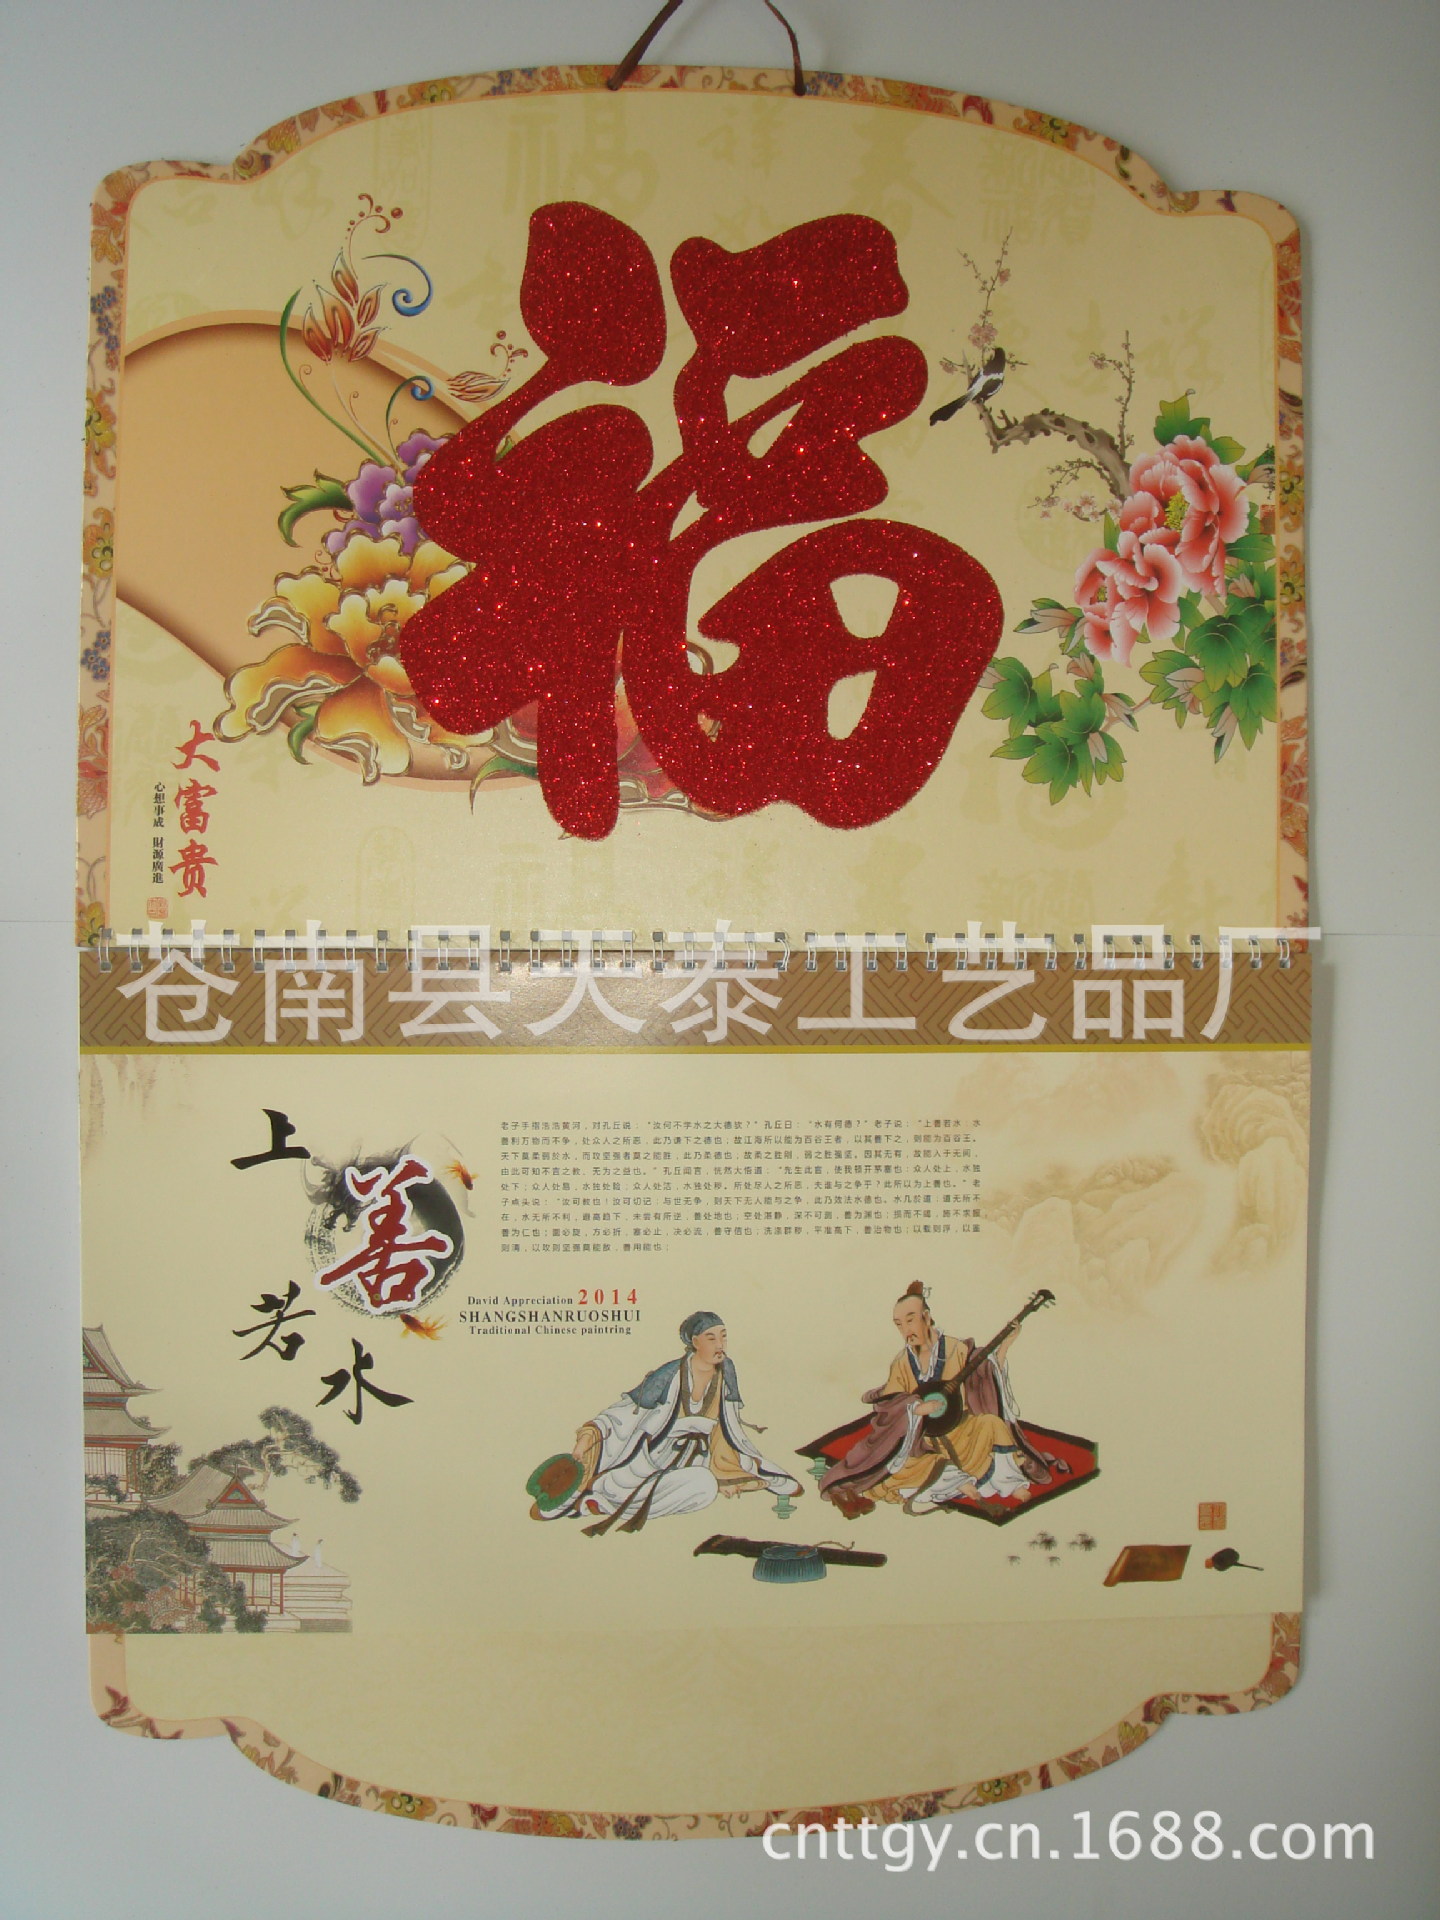 福
大富贵
心想事成 財源廣進
苍南县天泰工艺品厂
上善若水
老子手指浩浩黄河，对孔丘说：“汝何不学水之大德欤？”孔丘曰：“水有何德？”老子说：“上善若水：水
善利万物而不争，处众人之所恶，此乃谦下之德也；故江海所以能为百谷王者，以其善下之，则能为百谷王。
天下莫柔弱於水，而攻坚强者莫之能胜，此乃柔德也；故柔之胜刚，弱之胜强坚。因其无有，故能入于无间，
由此可知不言之教、无为之益也。”孔丘闻言，恍然大悟道：“先生此言，使我顿开茅塞也：众人处上，水独
处下；众人处易，水独处险；众人处洁，水独处秽。所处尽人之所恶，夫谁与之争乎？此所以为上善也。”老
子点头说：“汝可教也！汝可切记：与世无争，则天下无人能与之争，此乃效法水德也。水几於道：道无所不
在，水无所不利，避高趋下，未尝有所逆，善处地也；空处湛静，深不可测，善为渊也；损而不竭，施不求报，
善为仁也；圜必旋，方必折，塞必止，决必流，善守信也；洗涤群秽，平准高下，善治物也；以载则浮，以鉴
则清，以攻则坚强莫能敌，善用能也；
David Appreciation 2014
SHANGSHANRUOSHUI
Traditional Chinese paintring
cnttgy.cn.1688.com